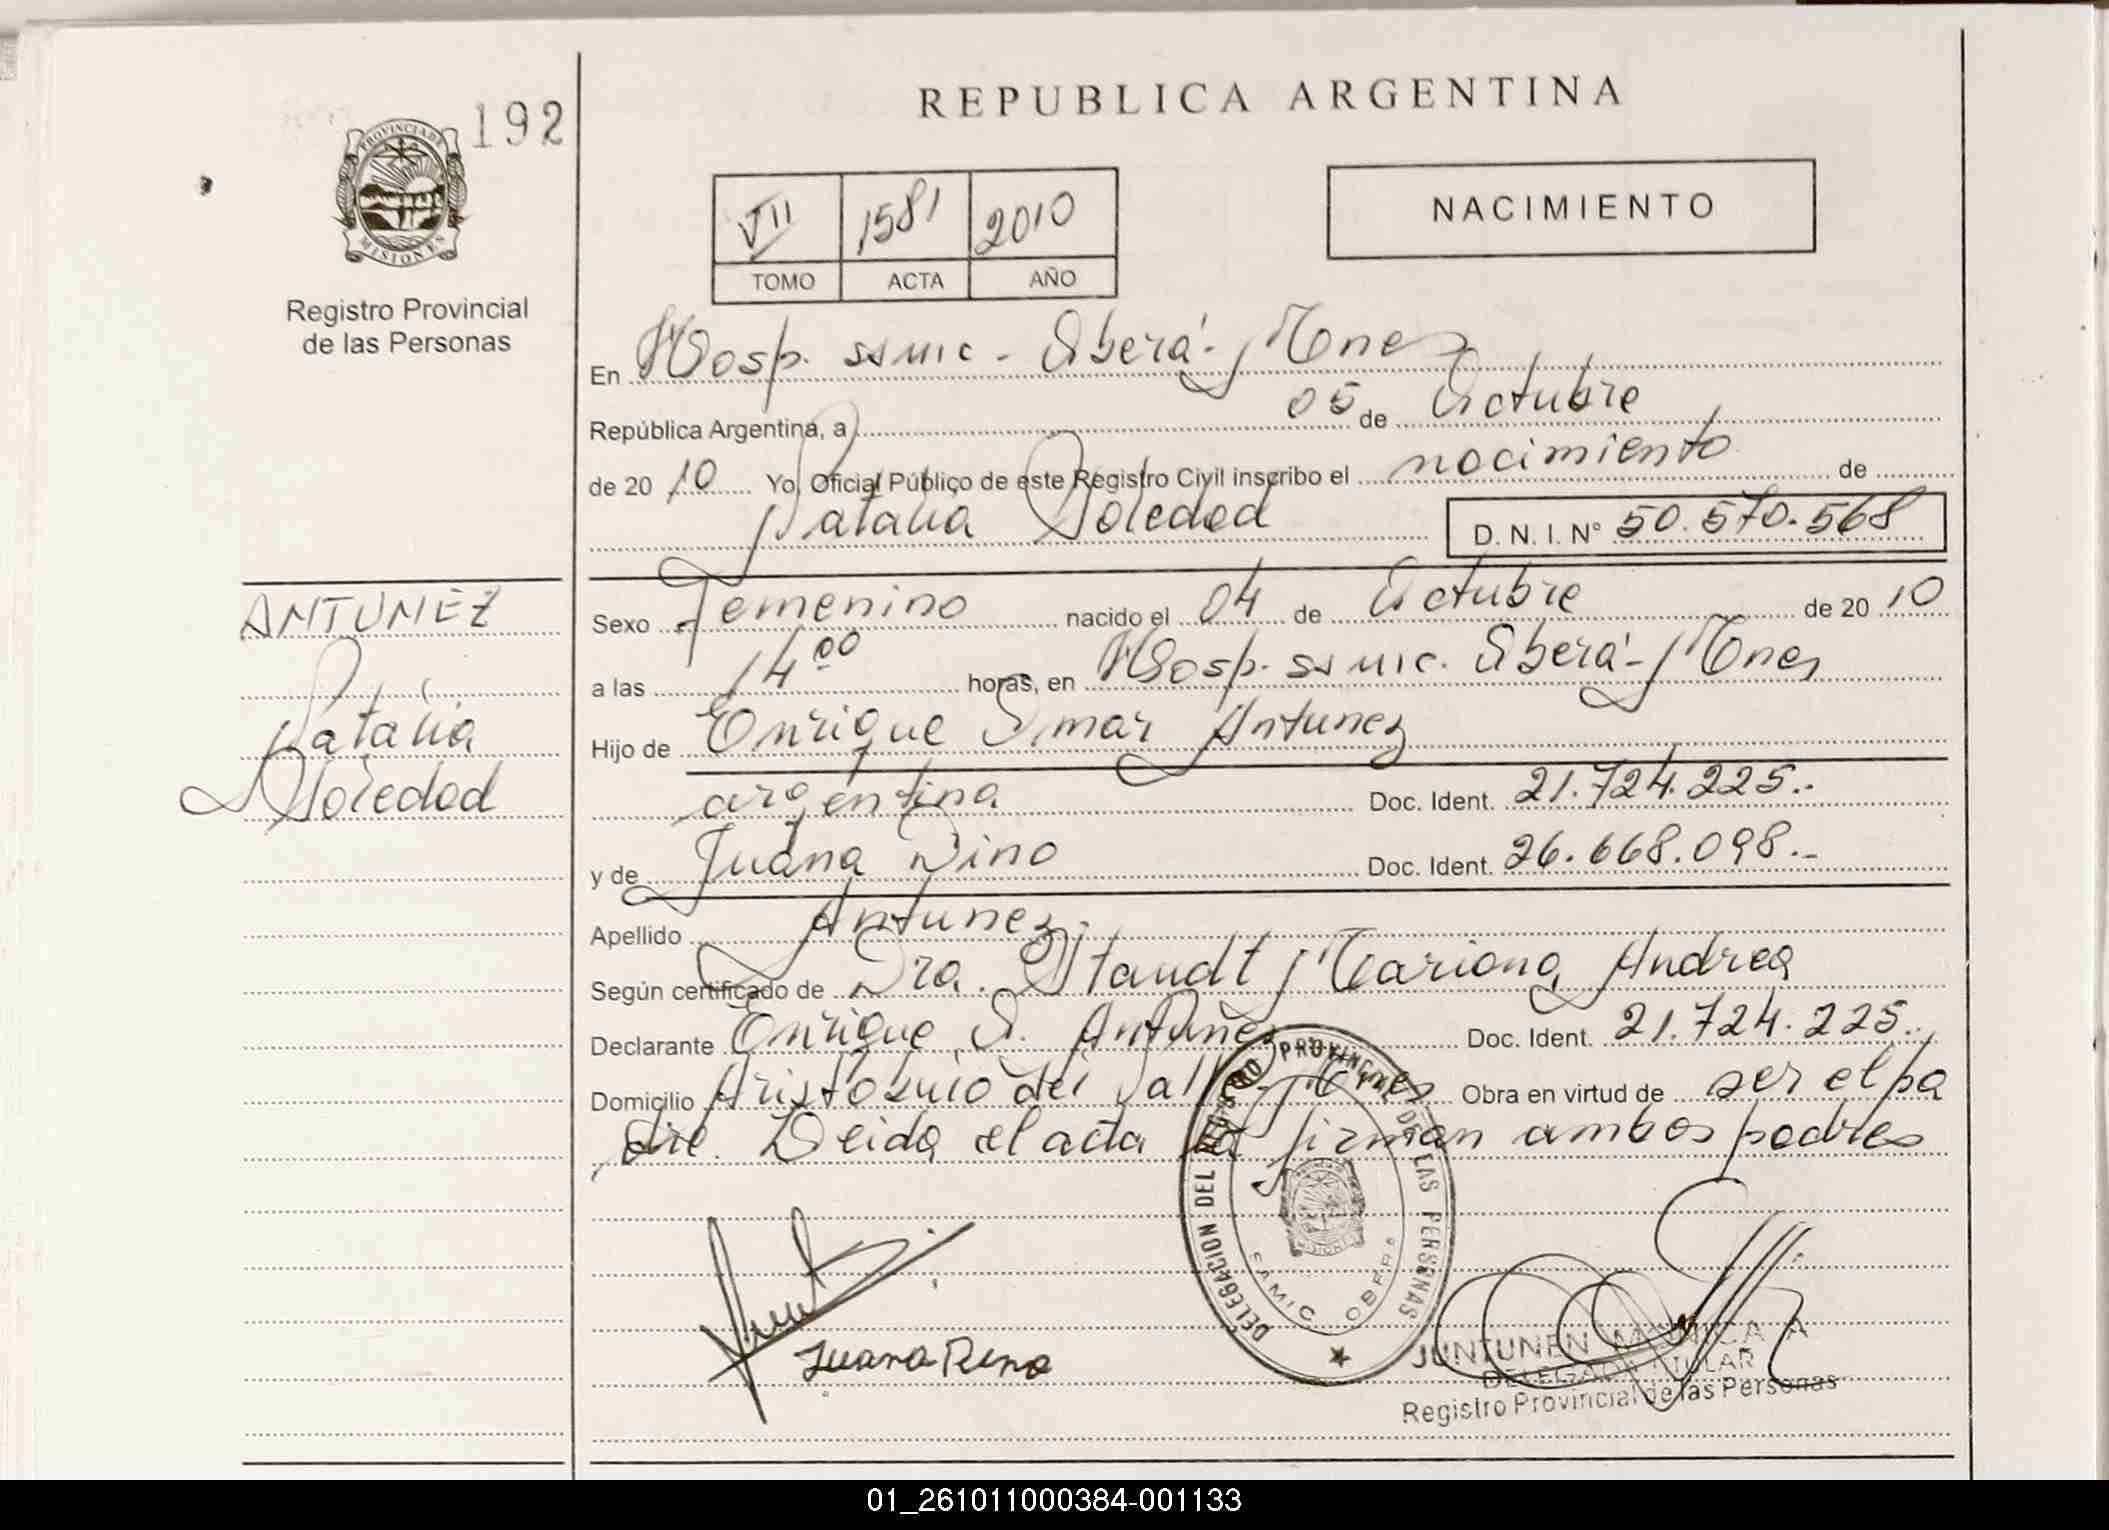 192
PROVINCIA DE
MISIONES
Registro Provincial
de las Personas
REPUBLICA ARGENTINA
VII 1581 2010
TOMO ACTA AÑO
NACIMIENTO
En Hosp. ssmic - Oberá - Mnes
República Argentina, a 05 de Octubre
de 20 10 Yo, Oficial Público de este Registro Civil inscribo el nacimiento de
Natalia Soledad D. N. I. N° 50.570.568
ANTUNEZ
Natalia
Soledad
Sexo Femenino nacido el 04 de Octubre de 20 10
a las 14 00 horas, en Hosp. ssmic. Oberá - Mnes
Hijo de Enrique Omar Antunez
argentina Doc. Ident. 21.724.225.-
y de Juana Dino Doc. Ident. 26.668.098.-
Apellido Antunez.
Según certificado de Dra. Staudt Mariana Andrea
Declarante Enrique O. Antunez Doc. Ident. 21.724.225.-
Domicilio Aristobulo del Valle - Mnes Obra en virtud de ser el pa
dre. Leida el acta la firman ambos padres
DELEGACION DEL REGISTRO PROVINCIAL DE LAS PERSONAS
SAMIC OBERA
MISIONES
Juana
JUNTUNEN MONICA A
DELEGADA TITULAR
Registro Provincial de las Personas
01_261011000384-001133